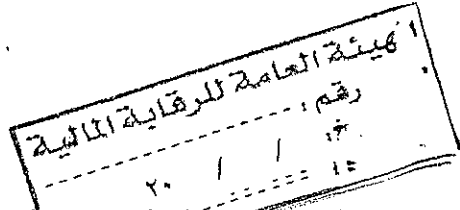 الهيئة العامة للرقابة المالية
رقم :
/ / ٢٠